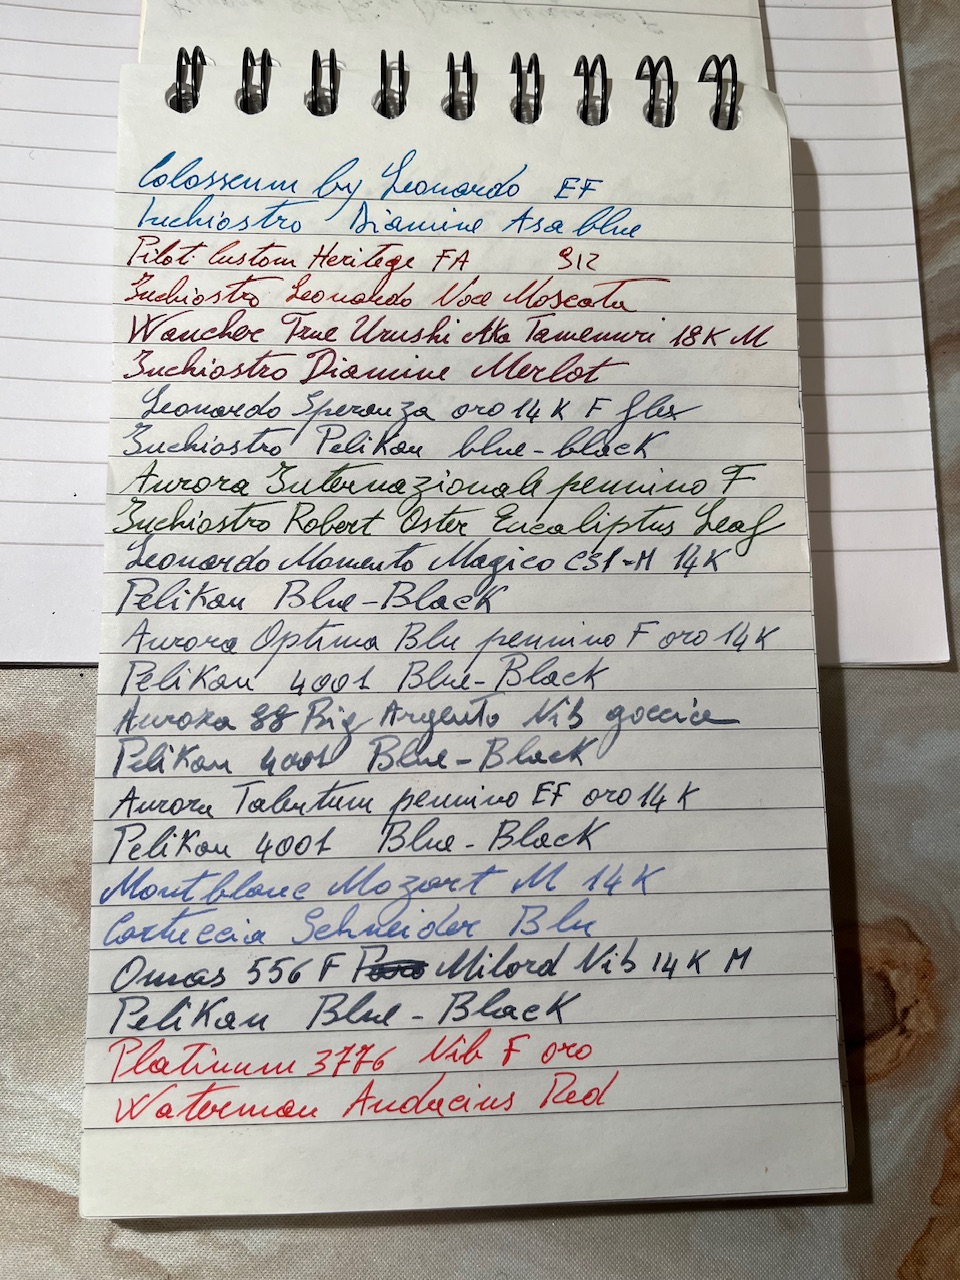 Colosseum by Leonardo EF
Inchiostro Diamine Asa blue
Pilot Custom Heritege FA 912
Inchiostro Leonardo Noce Moscata
Wancher True Urushi Aka Tamenuri 18K M
Inchiostro Diamine Merlot
Leonardo Speranza oro 14K F flex
Inchiostro Pelikan blue-black
Aurora Internazionale pennino F
Inchiostro Robert Oster Eucaliptus Leaf
Leonardo Momento Magico CSI-M 14K
Pelikan Blue-Black
Aurora Optima Blu pennino F oro 14K
Pelikan 4001 Blue-Black
Aurora 88 Big Argento Nib goccia
Pelikan 4001 Blue-Black
Aurora Talentum pennino EF oro 14K
Pelikan 4001 Blue-Black
Montblanc Mozart M 14K
Cartuccia Schneider Blu
Omas 556 F Milord Nib 14K M
Pelikan Blue-Black
Platinum 3776 Nib F oro
Waterman Audacius Red